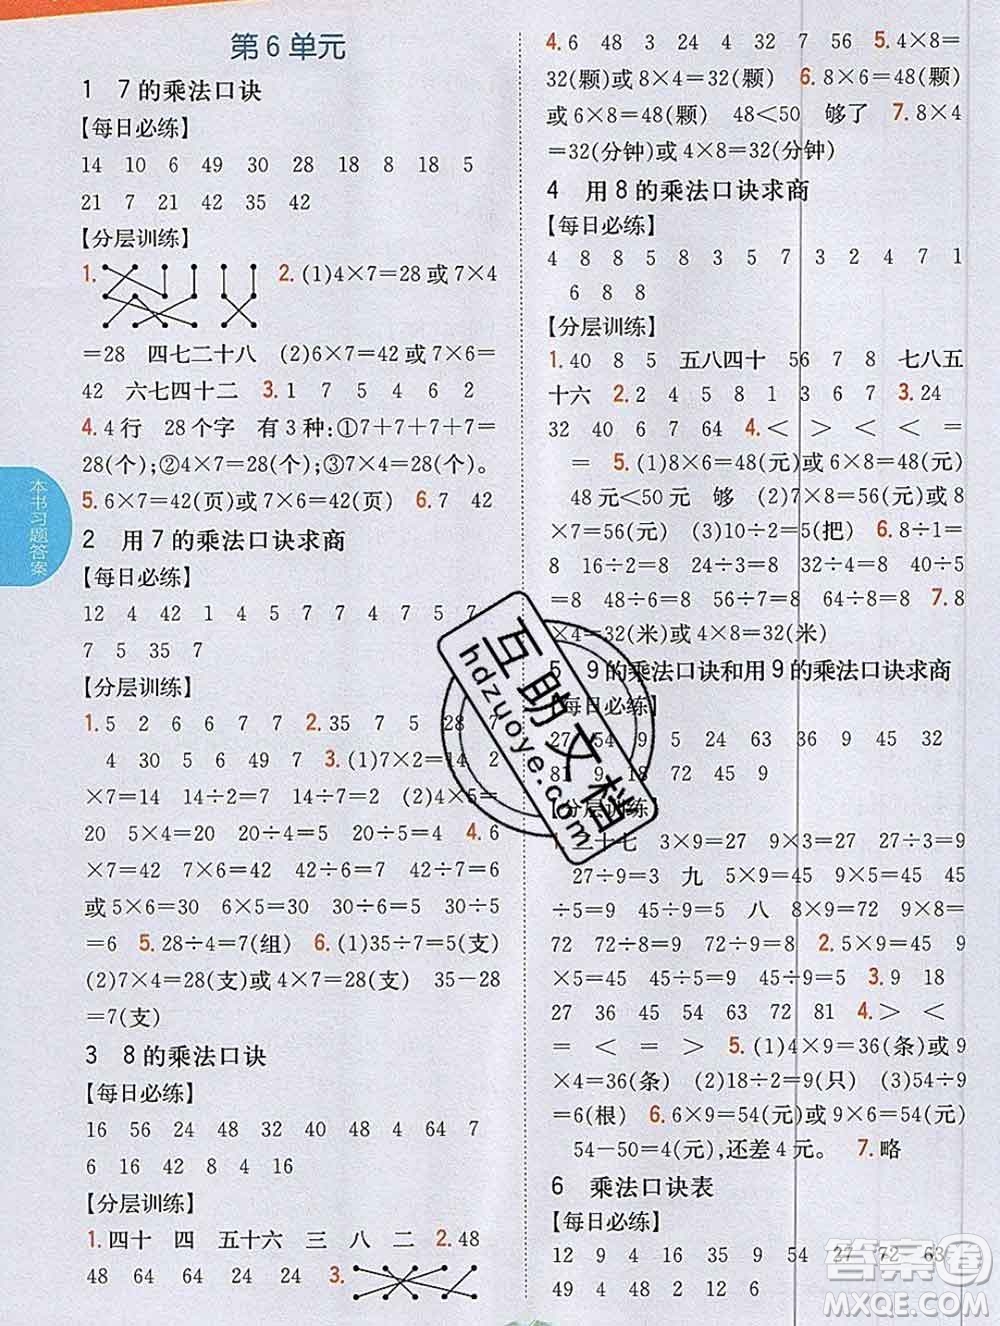 第6单元
1 7的乘法口诀
【每日必练】
14 10 6 49 30 28 18 8 18 5
21 7 21 42 35 42
【分层训练】
1.
2.(1)4×7=28或7×4
=28 四七二十八 (2)6×7=42或7×6=
42 六七四十二 3.1 7 5 4 6 2
4.4行 28个字 有3种:①7+7+7+7=
28(个);②4×7=28(个);③7×4=28(个)。
5.6×7=42(页)或7×6=42(页) 6.7 42
2 用7的乘法口诀求商
【每日必练】
12 4 42 1 4 5 7 7 4 7 5 7
7 5 35 7
【分层训练】
1.5 2 6 6 7 7 2.35 7 5 28 7
4 30 5 6 49 7 3.(1)7×2=14 2
×7=14 14÷2=7 14÷7=2 (2)4×5=
20 5×4=20 20÷4=5 20÷5=4 4.6
×7=42 7×6=42 42÷6=7 42÷7=6
或5×6=30 6×5=30 30÷6=5 30÷5
=6 5.28÷4=7(组) 6.(1)35÷7=5(支)
(2)7×4=28(支)或4×7=28(支) 35-28
=7(支)
3 8的乘法口诀
【每日必练】
16 56 24 48 32 40 8 4 64 7
6 16 42 8 4 16
【分层训练】
1.四十 四 五十六 三 八 二 2.48
48 64 64 24 24 3.
4.6 48 3 24 4 32 7 56 5.4×8=
32(颗)或8×4=32(颗) 6.8×6=48(颗)
或6×8=48(颗) 48<50 够了 7.8×4
=32(分钟)或4×8=32(分钟)
4 用8的乘法口诀求商
【每日必练】
4 8 8 5 8 3 5 7 3 2 4 7 1
6 8 8
【分层训练】
1.40 8 5 五八四十 56 7 8 七八五
十六 2.2 4 5 8 1 3 6 7 3.24
32 40 6 7 64 4.< > < < =
= 5.(1)8×6=48(元)或6×8=48(元)
48元<50元 够 (2)7×8=56(元)或8×7
=56(元) (3)10÷2=5(把) 6.8÷1=
8 16÷2=8 24÷3=8 32÷4=8 40÷5
=8 48÷6=8 56÷7=8 64÷8=8 7.8
×4=32(米)或4×8=32(米)
5 9的乘法口诀和用9的乘法口诀求商
【每日必练】
27 54 9 5 24 63 36 9 45 32
81 9 18 72 45 9
【分层训练】
1.三 二十七 3×9=27 9×3=27 27÷3=9
27÷9=3 九 5×9=45 9×5=45 45
÷5=9 45÷9=5 八 8×9=72 9×8=
72 72÷8=9 72÷9=8 2.5×9=45 9
×5=45 45÷5=9 45÷9=5 3.9 18
27 36 45 54 63 72 81 4.> < <
= < = > 5.(1)4×9=36(条)或9
×4=36(条) (2)18÷2=9(只) (3)54÷9
=6(根) 6.6×9=54(元)或9×6=54(元)
54-50=4(元),还差4元。 7.略
6 乘法口诀表
【每日必练】
12 9 4 16 35 9 54 27 72 63
49 4 48 2 12 6
本书习题答案
互助文档
hdzuoye.com
答案圈
MXQE.COM